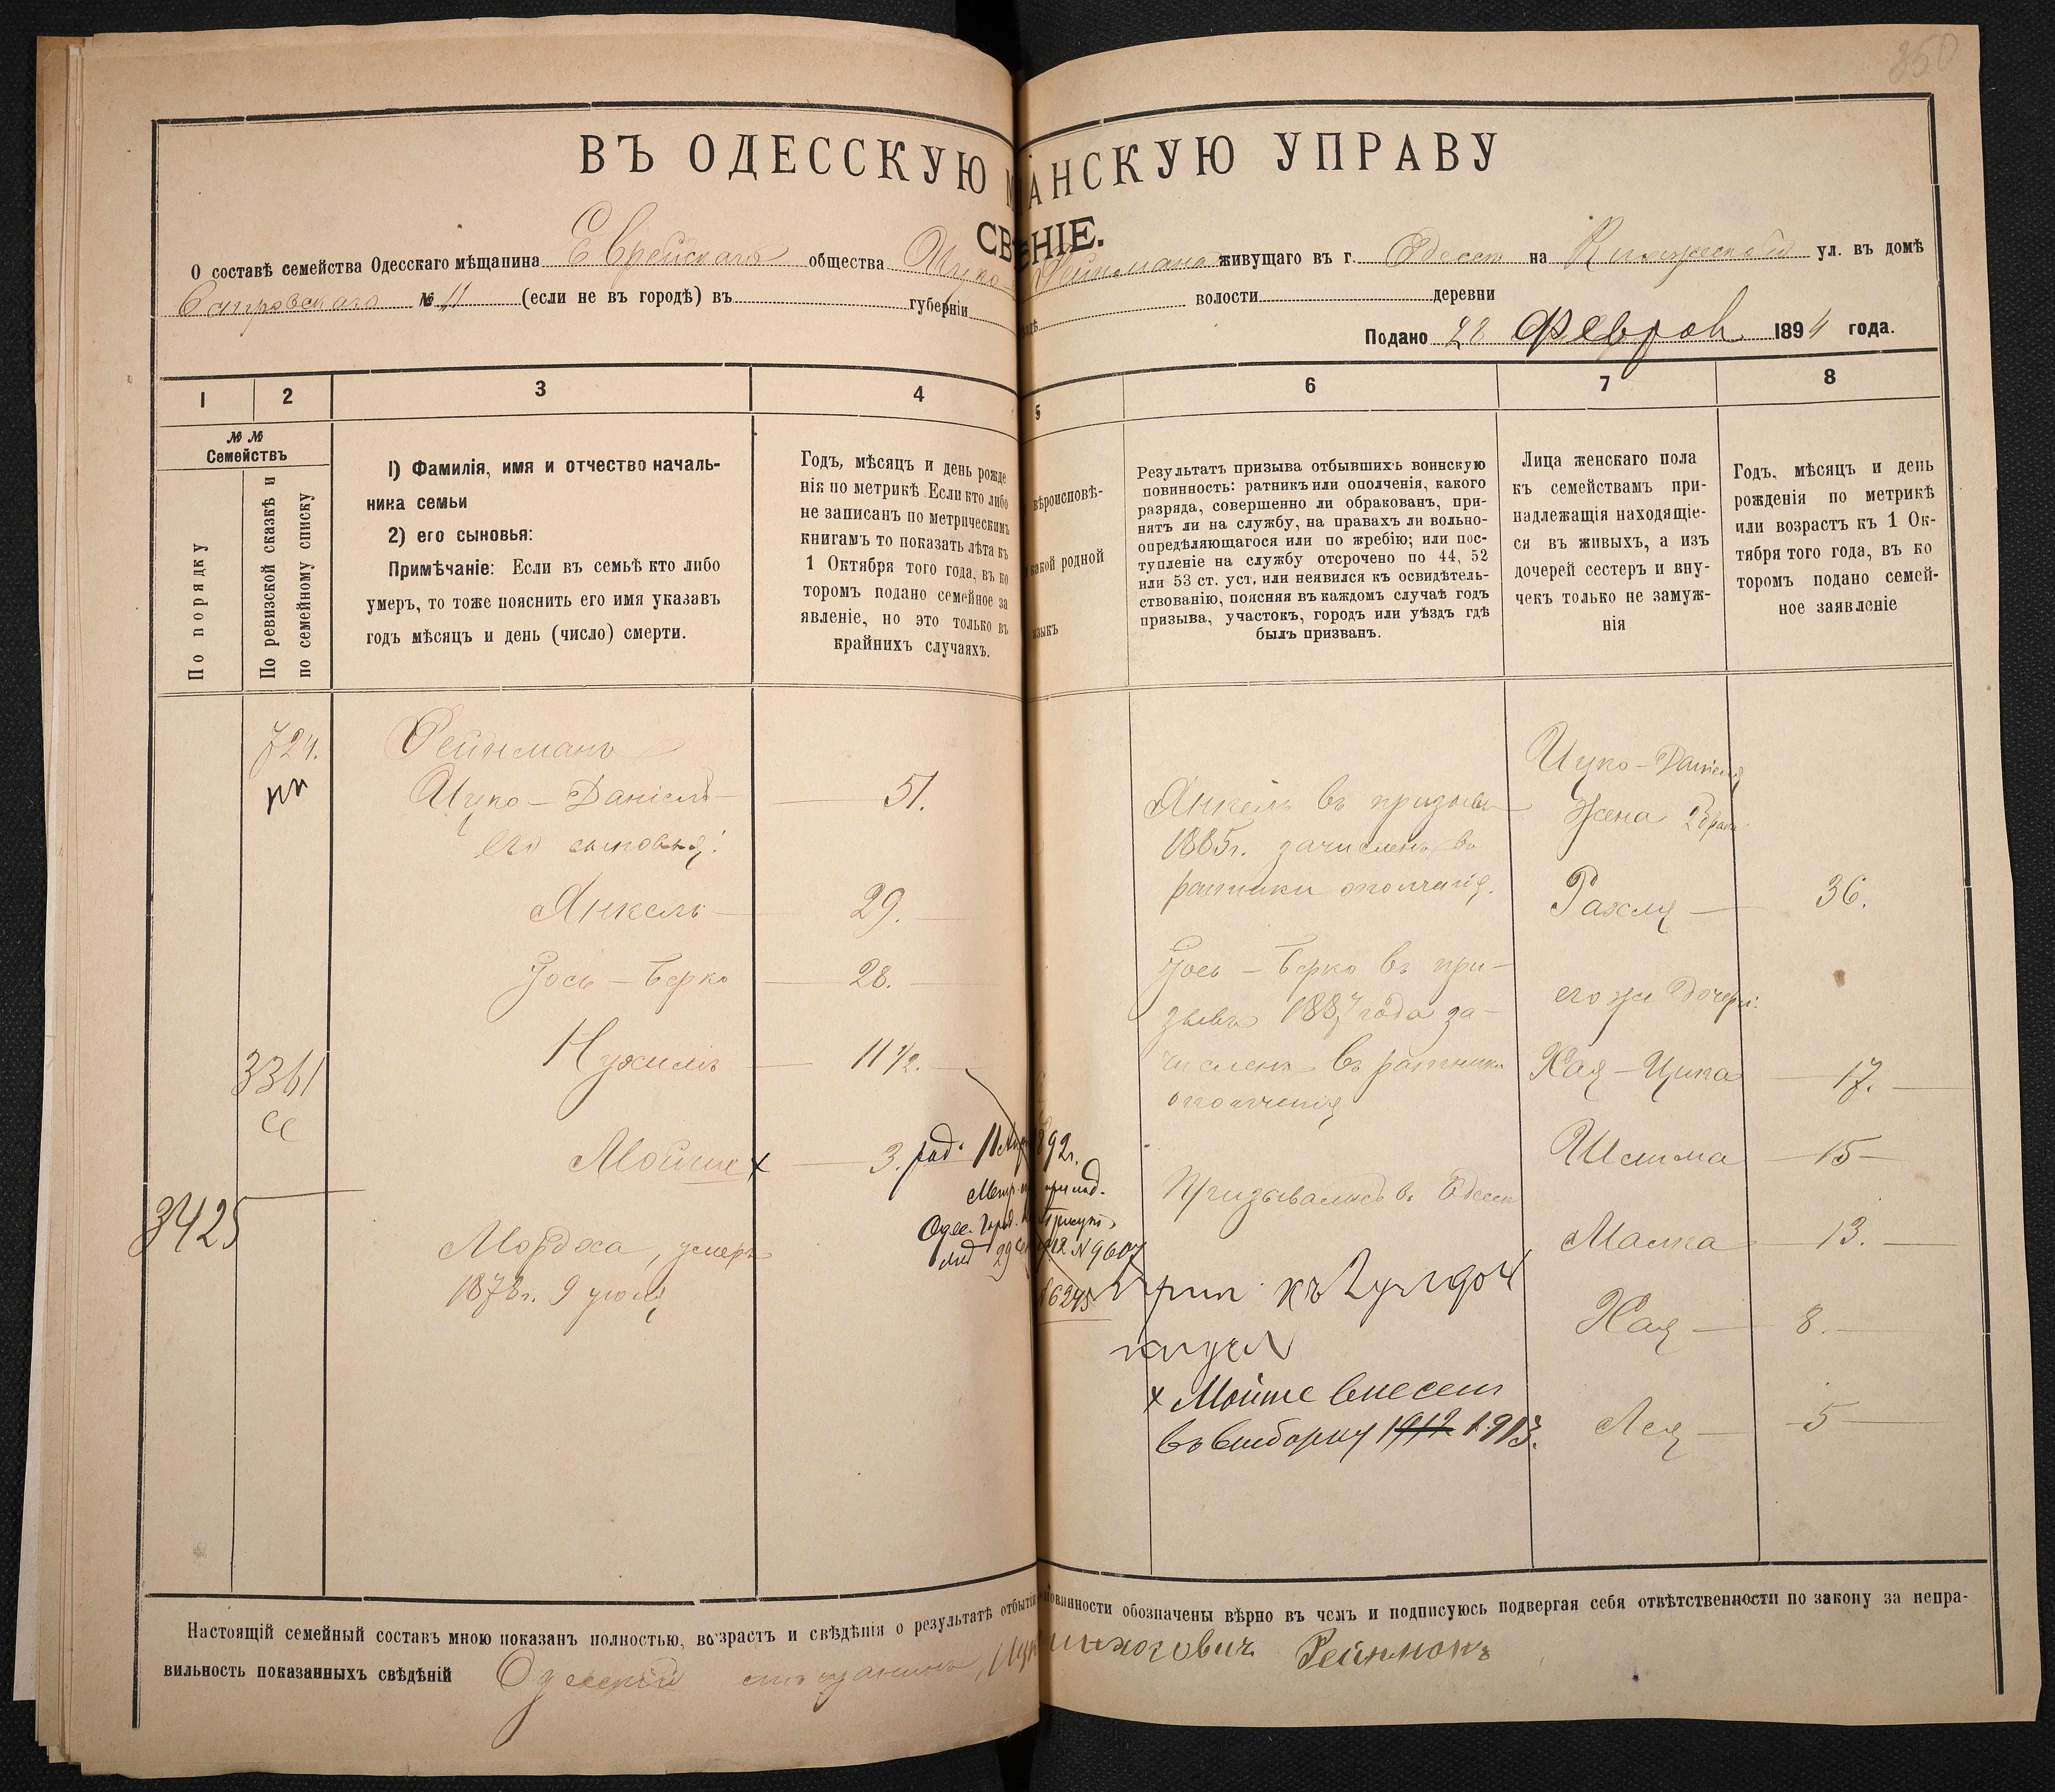 350
ВЪ ОДЕССКУЮ АНСКУЮ УПРАВУ
СВ ЕНІЕ.
О составѣ семейства Одесскаго мѣщанина Еврейскаго общества Ицко живущаго въ г. Одессѣ на ул. въ домѣ
№ 11 (если не въ городѣ) въ губерніи волости деревни
Подано 28 Феврал 1894 года.
1 2 3 4 5 6 7 8
№ №
Семействъ
По порядку
По ревизской сказкѣ и
по семейному списку
1) Фамилія, имя и отчество началь-
ника семьи
2) его сыновья:
Примѣчаніе: Если въ семьѣ кто либо
умеръ, то тоже пояснить его имя указавъ
годъ мѣсяцъ и день (число) смерти.
Годъ, мѣсяцъ и день рожде
нія по метрикѣ Если кто либо
не записанъ по метрическимъ
книгамъ то показать лѣта къ
1 Октября того года, въ ко
торомъ подано семейное за
явленіе, но это только въ
крайнихъ случаяхъ.
вѣроисповѣ-
какой родной
языкъ
Результатъ призыва отбывшихъ воинскую
повинность: ратникъ или ополченія, какого
разряда, совершенно ли обракованъ, при-
нятъ ли на службу, на правахъ ли вольно-
опредѣляющагося или по жребію; или пос-
тупленіе на службу отсрочено по 44, 52
или 53 ст. уст. или неявился къ освидѣтель-
ствованію, поясняя въ каждомъ случаѣ годъ
призыва, участокъ, городъ или уѣздъ гдѣ
былъ призванъ.
Лица женскаго пола
къ семействамъ при-
надлежащія находящіе-
ся въ живыхъ, а изъ
дочерей сестеръ и вну-
чекъ только не замуж-
нія
Годъ, мѣсяцъ и день
рожденія по метрикѣ
или возрастъ къ 1 Ок-
тября того года, въ ко
торомъ подано семей-
ное заявленіе
724.
Рейнманъ
Ицко-Даніель 51.
его сыновья:
Янкель 29.
Іось-Берко 28.
Нухимъ 11 1/2.
3361
Мойше x 3. род. 11 1892г.
29 1912 N 9607
6245
3425
Мордха, умеръ
1878г. 9 іюля
Янкель въ призывъ
1885г. зачисленъ въ
ратники ополченія.
Іось-Берко въ при-
зывъ 1887 года за-
численъ въ ратники
ополченія
Призывались въ Одессѣ
x Мойше внесенъ
въ выборку 1912 1913.
Ицко-Даніеля
жена 2 брака
Рахля 36.
его же дочери:
Хая-Ципа 17.
Шлима 15
Малка 13.
Хая 8.
Лея 5
Настоящій семейный составъ мною показанъ полностью, возрастъ и свѣдѣнія о результатѣ отбытія повинности обозначены вѣрно въ чемъ и подписуюсь подвергая себя отвѣтственности по закону за непра-
вильность показанныхъ свѣдѣній Одесскій мѣщанинъ, Рейнманъ